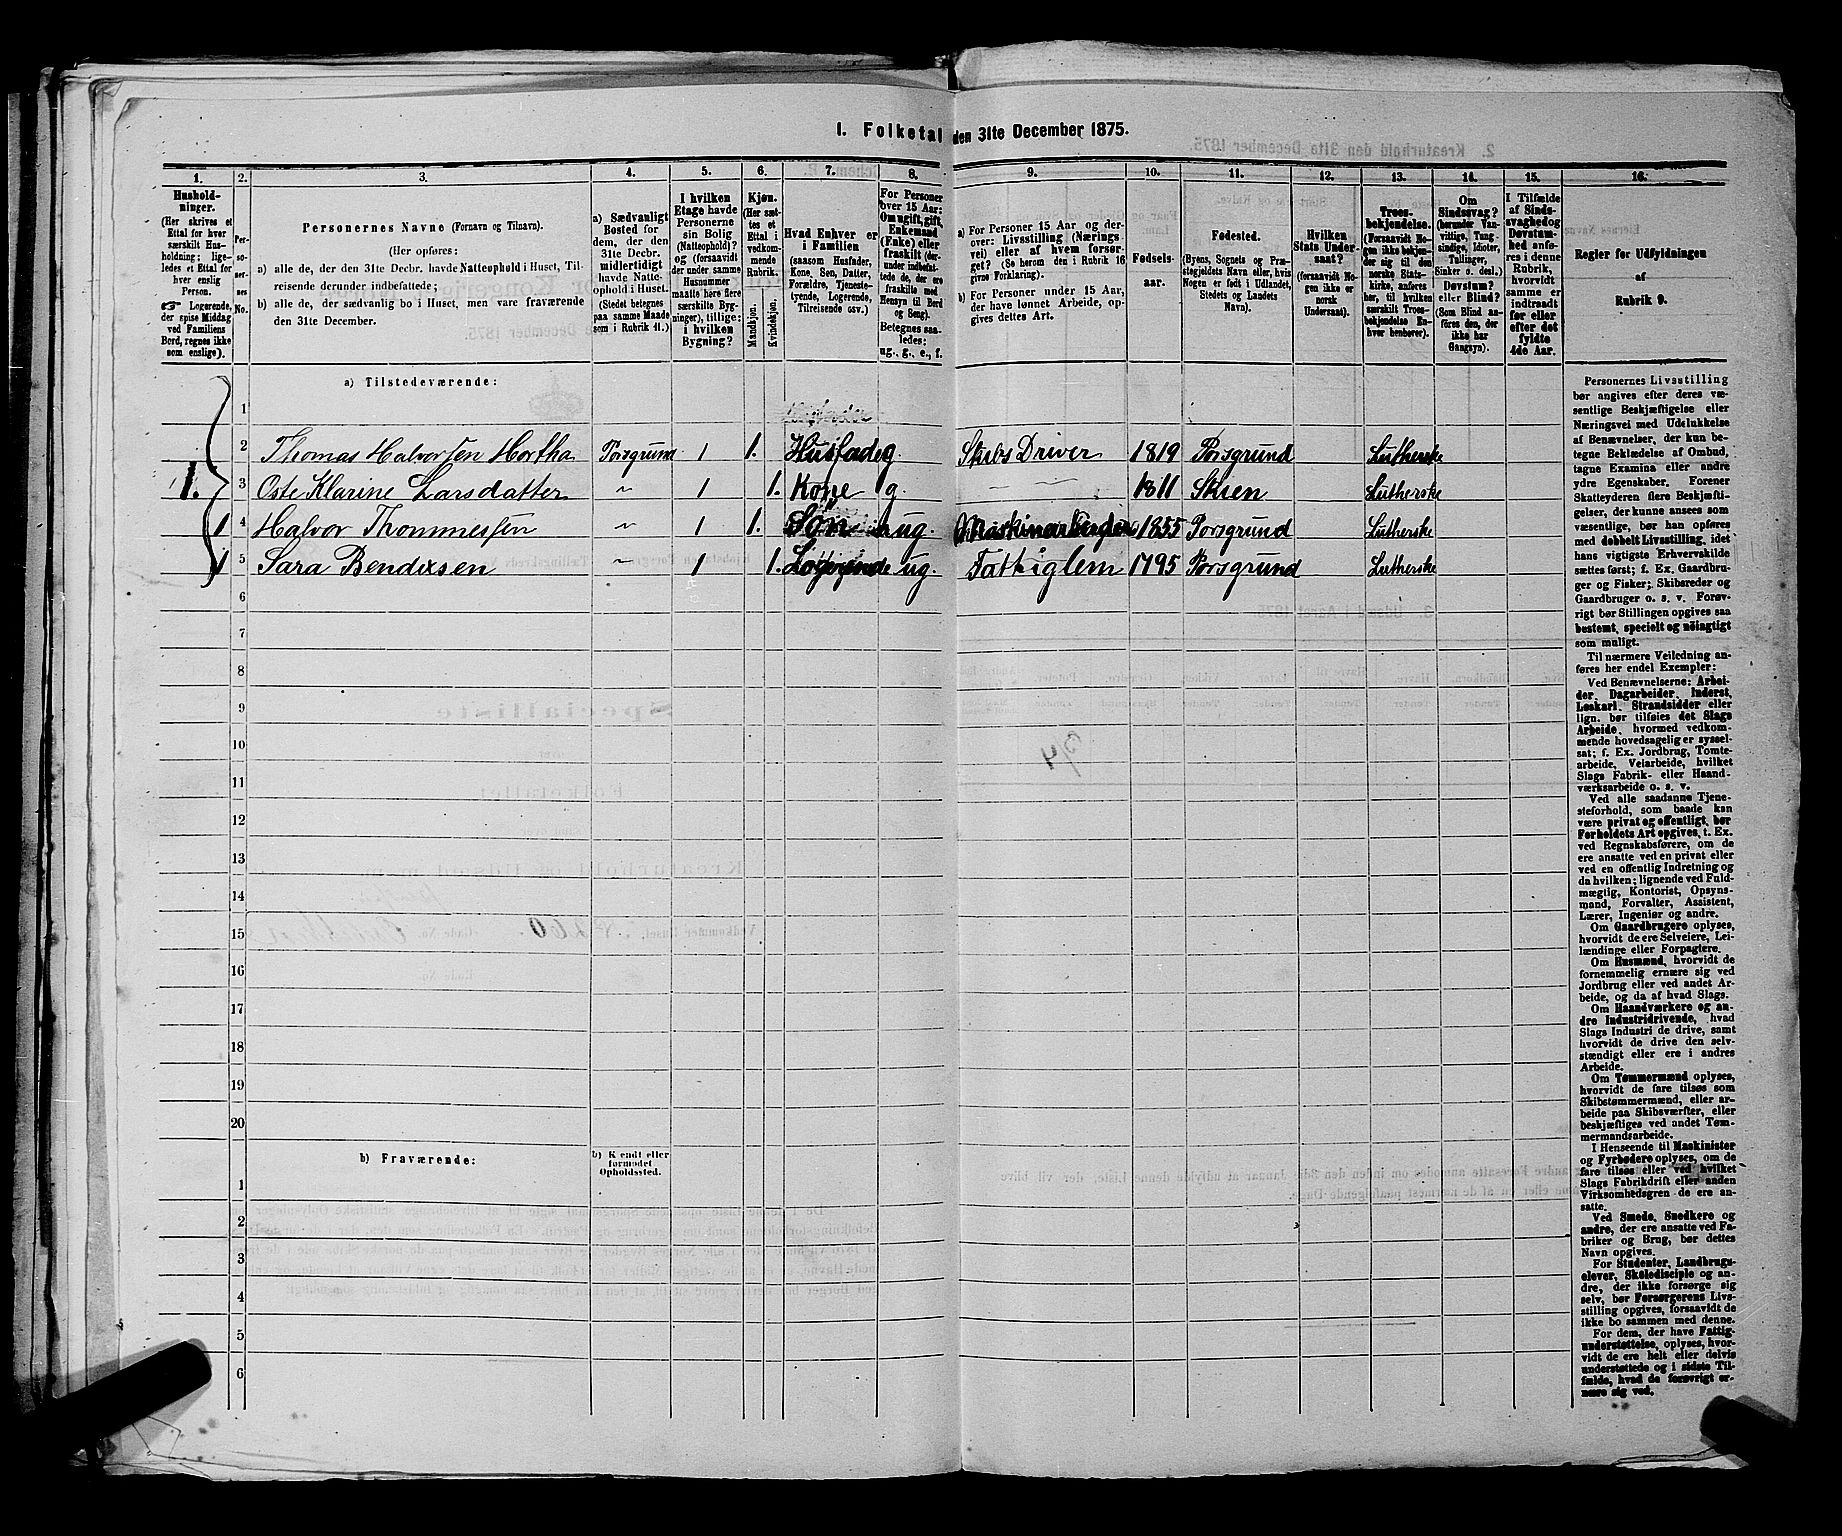 1. Folketal den 31te December 1875.
1. 2. 3. 4. 5. 6. 7. 8. 9. 10. 11. 12. 13. 14. 15. 16.
Hushold-
ninger.
(Her skrives et
Ettal for hver
særskilt Hus-
holdning; lige-
ledes et Ettal for
hver enslig
Person.
☞ Logerende,
der spise Middag
ved Familiens
Bord, regnes ikke
som enslige).
Per-
soner-
nes
No.
Personernes Navne (Fornavn og Tilnavn).
(Her opføres:
a) alle de, der den 31te Decbr. havde Natteophold i Huset, Til-
reisende derunder indbefattede;
b) alle de, der sædvanlig bo i Huset, men vare fraværende
den 31te December.
a) Sædvanligt
Bosted for
dem, der den
31te Decbr.
midlertidigt
havde Natte-
ophold i Huset.
(Stedet betegnes
paa samme Maade
som i Rubrik 11.)
I hvilken
Etage havde
Personerne
sin Bolig
(Natteophold)?
og (forsaavidt
der under samme
Husnummer
maatte høre flere
særskilte Byg-
ninger), tillige:
i hvilken
Bygning?
Kjøn.
(Her sæt-
tes et
Ettal i
vedkom-
mende
Rubrik.
Mandkjøn.
Kvindekjøn.
Hvad Enhver er
i Familien
(saasom Husfader,
Kone, Søn, Datter,
Forældre, Tjeneste-
tyende, Logerende,
Tilreisende osv.)
For Personer
over 15 Aar:
Om ugift, gift,
Enkemand
(Enke) eller
fraskilt (der-
under indbefat-
tede de, der ere
fraskilte med
Hensyn til Bord
og Seng).
Betegnes saa-
ledes:
ug., g., e., f.
a) For Personer 15 Aar og der-
over: Livsstilling (Nærings
vei) eller af hvem forsør-
get? (Se herom den i Rubrik 16
givne Forklaring).
b) For Personer under 15 Aar,
der have lønnet Arbeide, op-
gives dettes Art.
Fødsels-
aar.
Fødested.
(Byens, Sognets og Præ-
stegjeldets Navn eller, hvis
Nogen er født i Udlandet,
Stedets og Landets
Navn).
Hvilken
Stats Under-
saat?
(forsaavidt No-
gen ikke er
norsk
Undersaat).
Troes-
bekjendelse.
(Forsaavidt No-
gen ikke bekjen-
der sig til den
norske Stats-
kirke, anføres
her, til hvilken
særskilt Troes-
bekjendelse En-
hver henhører).
Om
Sindssvag?
(herunder Van-
vittige, Tung-
sindige, Idioter,
Tullinger,
Sinker o. desl.)
Døvstum?
eller Blind?
(Som Blind an-
føres den, der
ikke har
Gangsyn).
I Tilfælde
af Sinds-
svaghed og
Døvstum-
hed anfø-
res i denne
Rubrik,
hvorvidt
samme er
indtraadt
før eller
efter det
fyldte
4de Aar.
Regler for Udfyldningen
af
Rubrik 9.
a) Tilstedeværende:
1
2 Thomas Halvorsen Hortha Porsgrund 1 1. Husfader g. Skibs Driver 1819 Porsgrund Lutherske
1. 3 Oste Klarine Larsdatter " 1 1. Kone g. 1811 Skien Lutherske
1 4 Halvor Thommessen " 1 1. Søn ug. Maskinarbeider 1855 Porsgrund Lutherske
1 5 Sara Bendixsen " 1 1. Logerende ug. Fattiglem 1795 Porsgrund Lutherske
6
7
8
9
10
11
12
13
14
15
16
17
18
19
20
b) Fraværende:
b) Kjendt eller
formodet
Opholdssted.
1
2
3
4
5
6
Personernes Livsstilling
bør angives efter deres væ-
sentlige Beskjæftigelse eller
Næringsvei med Udelukkelse
af Benævnelser, der kun be-
tegne Beklædelse af Ombud,
tagne Examina eller andre
ydre Egenskaber. Forener
Skatteyderen flere Beskjæfti-
gelser, der kunne ansees som
væsentlige, bør han opføres
med dobbelt Livsstilling, idet
hans vigtigste Erhvervskilde
sættes først; f. Ex. Gaardbru-
ger og Fisker; Skibsreder og
Gaardbruger o. s. v. Forøv-
rigt bør Stillingen opgives saa
bestemt, specielt og nöiagtigt
som muligt.
Til nærmere Veiledning an-
føres her endel Exempler:
Ved Benævnelserne: Arbei-
der, Dagarbeider, Inderst,
Løskarl, Strandsidder eller
lign. bør tilføies det Slags
Arbeide, hvormed vedkom-
mende hovedsagelig er syssel-
sat; f. Ex. Jordbrug, Tomte-
arbeide, Veiarbeide, hvilket
Slags Fabrik- eller Haand-
værksarbeide o. s. v.
Ved alle saadanne Tjene-
steforhold, som baade kan
være privat og offentligt, bør
Forholdets Art opgives, t. Ex.
ved Regnskabsførere, om de
ere ansatte ved en privat eller
ved en offentlig Indretning og
da hvilken; lignende ved Fuld-
mægtig, Kontorist, Opsyns-
mand, Forvalter, Assistent,
Lærer, Ingeniør og andre.
Om Gaardbrugere oplyses,
hvorvidt de ere Selveiere, Lei-
lændinge eller Forpagtere.
Om Husmænd, hvorvidt de
fornemmelig ernære sig ved
Jordbrug eller ved andet Ar-
beide, og da af hvad Slags.
Om Haandværkere og an-
dre Industridrivende, hvad
Slags Industri de drive, samt
hvorvidt de drive den selv-
stændigt eller ere i andres
Arbeide.
Om Tømmermænd oplyses,
hvorvidt de fare tilsøs som
Skibstømmermænd, eller ar-
beide paa Skibsværfter, eller
beskjæftiges ved andet Tøm-
mermandsarbeide.
I Henseende til Maskinister
og Fyrbødere oplyses, om de
fare tilsøs eller ved hvilket
Slags Fabrikdrift eller anden
Virksomhedsgren de ere an-
satte.
Ved Smede, Snedkere og
andre, der ere ansatte ved Fa-
briker og Brug, bør dettes
Navn opgives.
For Studenter, Landbrugs-
elever, Skoledisciple og an-
dre, der ikke forsørge sig
selv, bør Forsørgerens Livs-
stilling opgives, forsaavidt de
ikke bo sammen med denne.
For dem, der have Fattig-
understøttelse, oplyses, hvor-
vidt de ere helt eller delvis
understøttede og i sidste Til-
fælde, hvad de forøvrigt er-
nære sig ved.